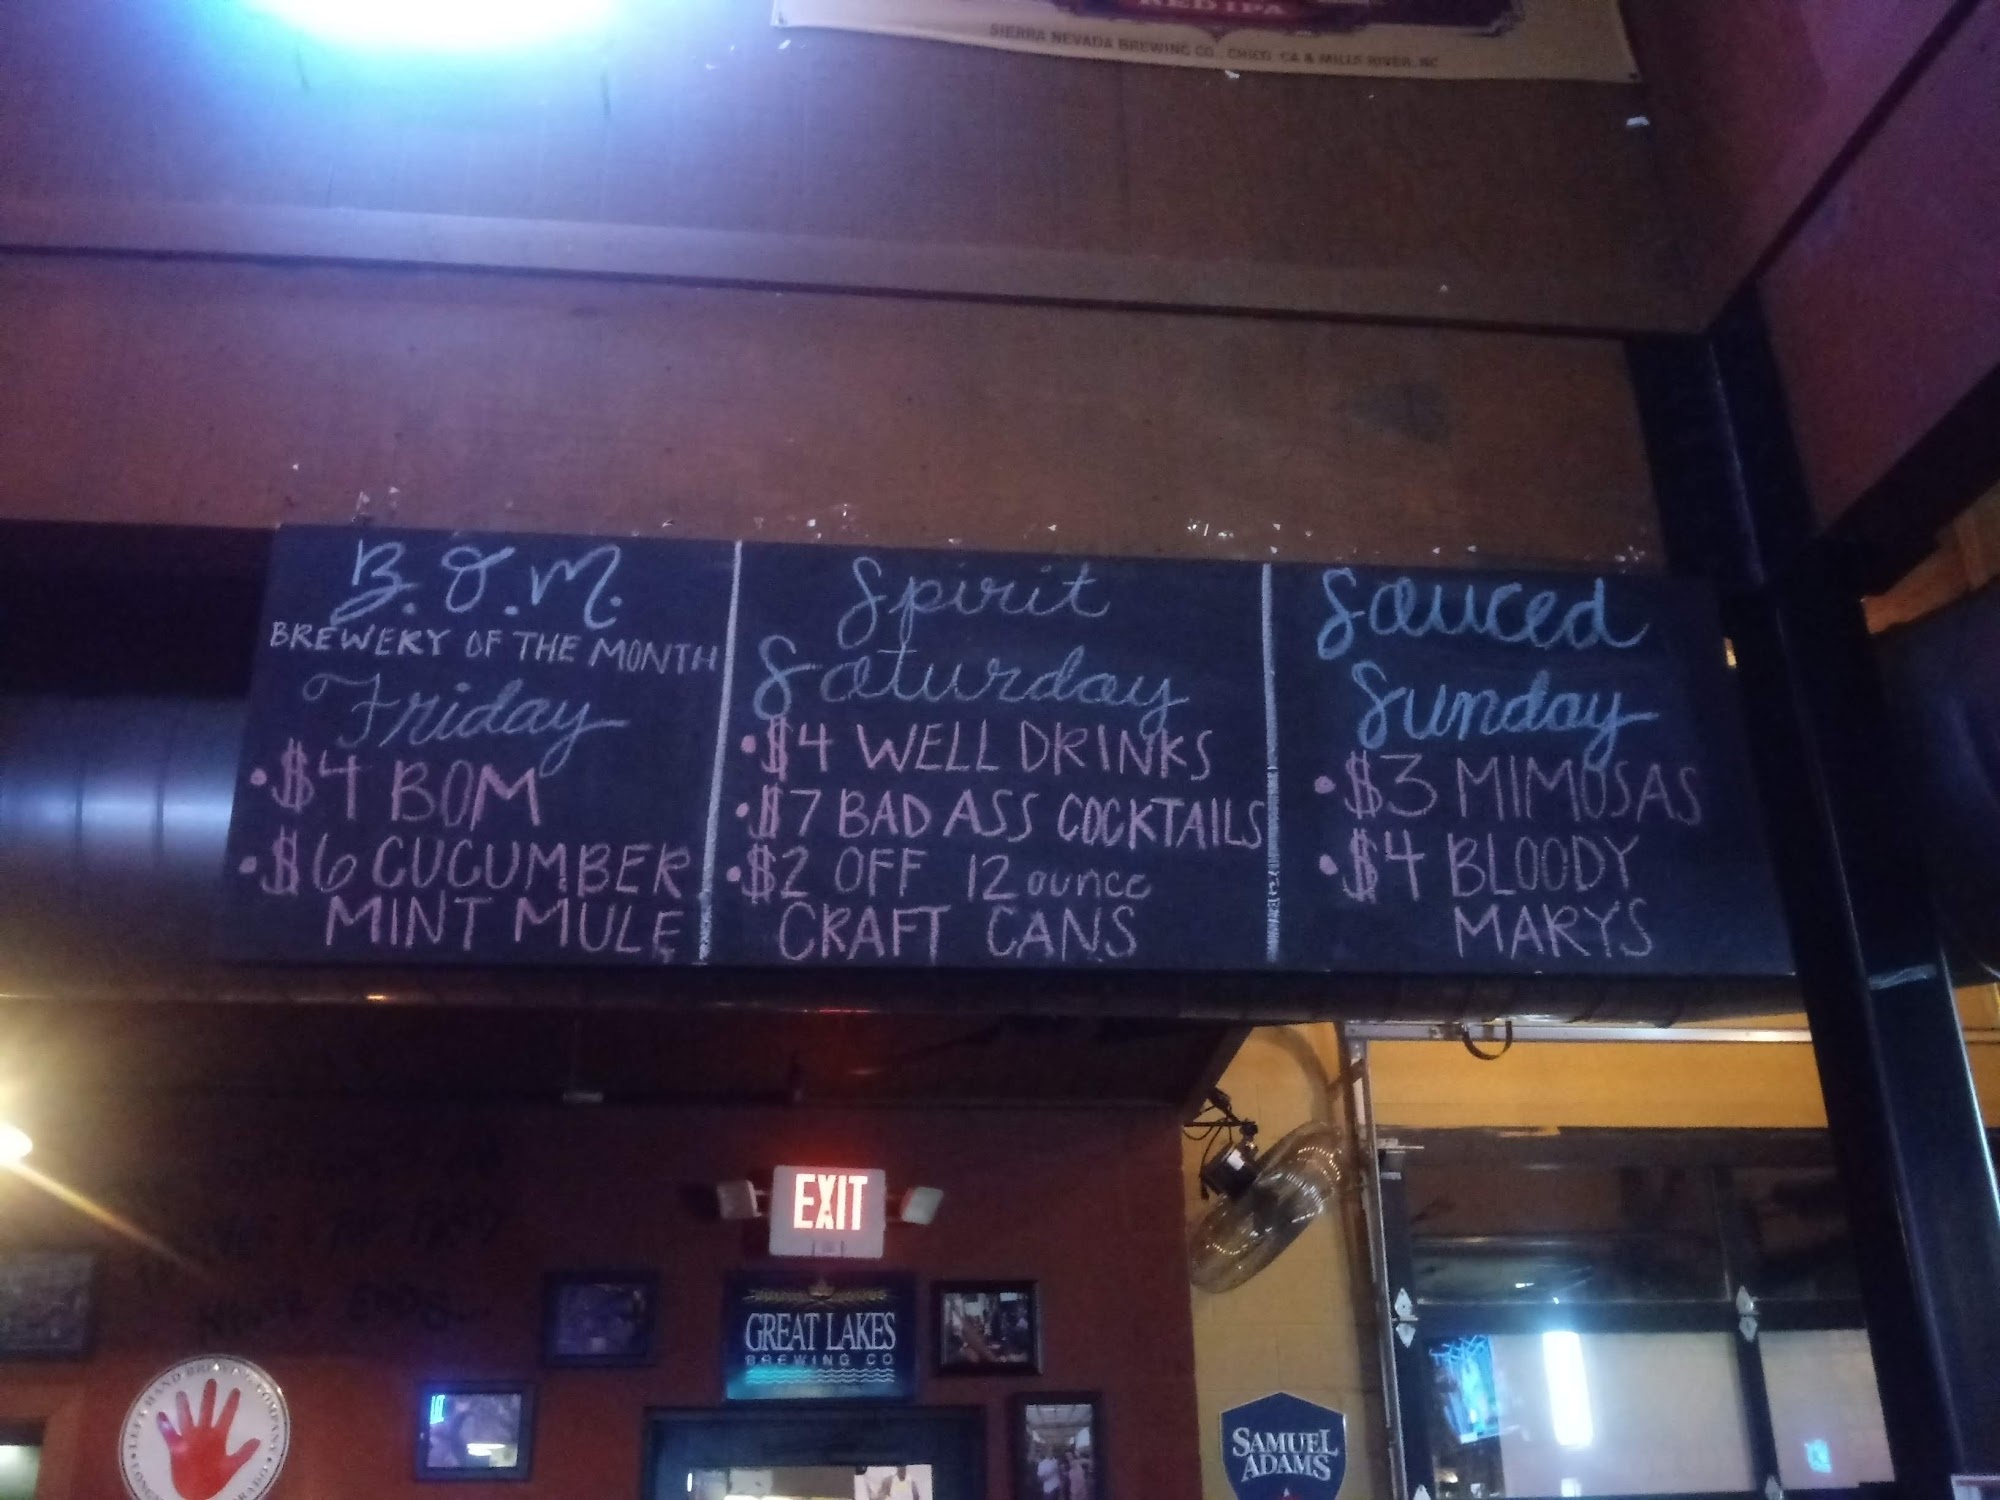 RED IPA
SIERRA NEVADA BREWING CO., CHICO, CA & MILLS RIVER, NC
B.O.M.
BREWERY OF THE MONTH
Friday
• $4 BOM
• $6 CUCUMBER
MINT MULE
Spirit
Saturday
• $4 WELL DRINKS
• $7 BAD ASS COCKTAILS
• $2 OFF 12 ounce
CRAFT CANS
Sauced
Sunday
• $3 MIMOSAS
• $4 BLOODY
MARYS
EXIT
GREAT LAKES
BREWING CO
LEFT HAND BREWING COMPANY
SAMUEL
ADAMS